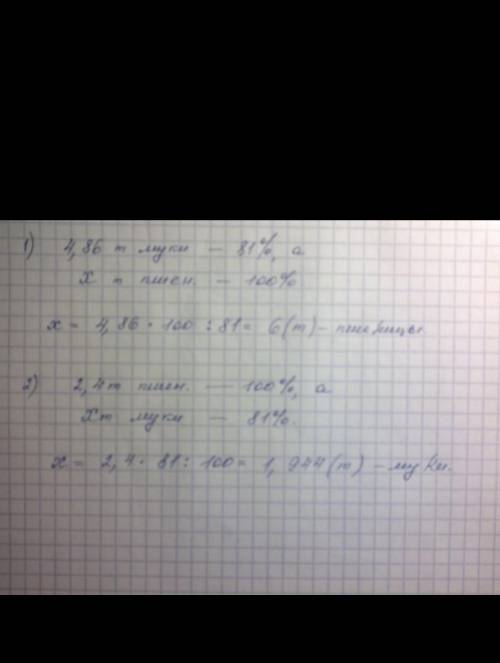 1) 4,86 т муки — 81%, а
х т пшен. — 100%
х = 4,86 · 100 : 81 = 6 (т) – пшеницы.
2) 2,4 т пшен. — 100%, а
х т муки — 81%.
х = 2,4 · 81 : 100 = 1,944 (т) – муки.